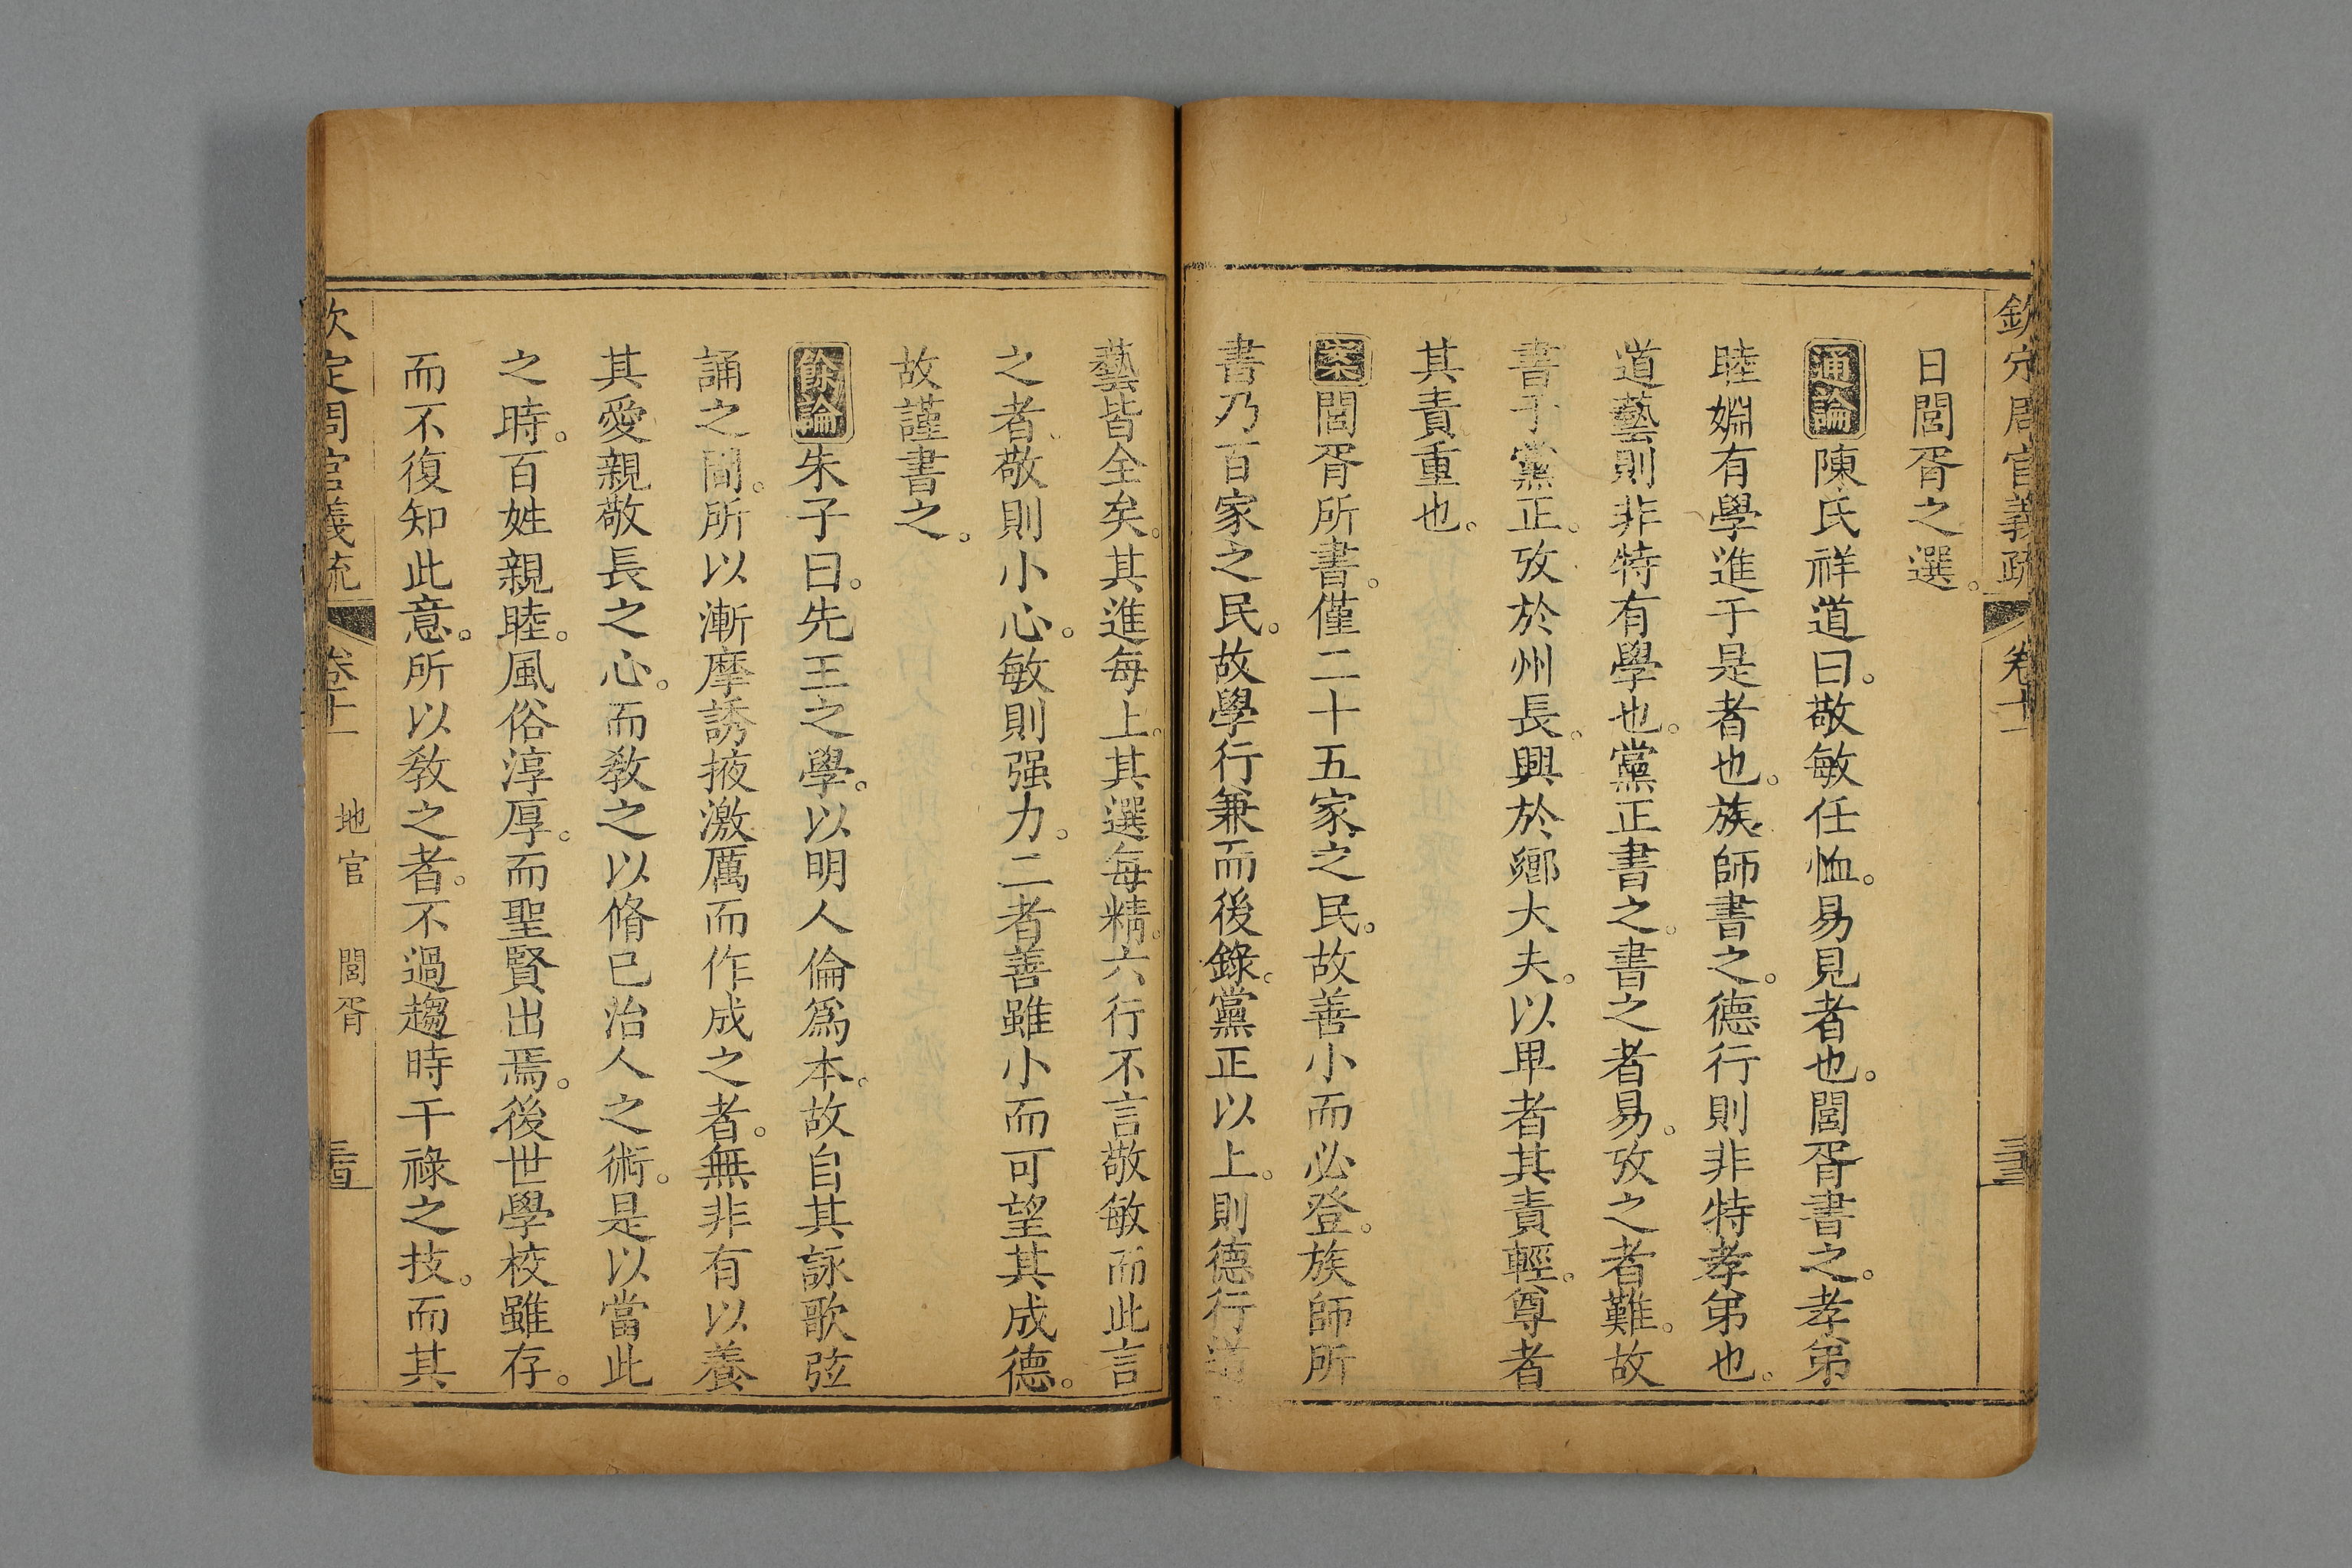 欽定周官義疏 卷十一
日閭胥之選。
通論陳氏祥道曰。敬敏任恤。易見者也。閭胥書之。孝弟
睦婣有學進于是者也。族師書之。德行則非特孝弟也。
道藝則非特有學也。黨正書之。書之者易。攷之者難。故
書于黨正。攷於州長。興於鄉大夫。以卑者其責輕。尊者
其責重也。
案閭胥所書。僅二十五家之民。故善小而必登。族師所
書乃百家之民。故學行兼而後錄。黨正以上。則德行道
藝皆全矣。其進每上。其選每精。六行不言敬敏而此言
之者。敬則小心。敏則强力。二者善雖小而可望其成德。
故謹書之。
餘論朱子曰。先王之學。以明人倫爲本。故自其詠歌弦
誦之間。所以漸摩誘掖激厲而作成之者。無非有以養
其愛親敬長之心。而敎之以脩已治人之術。是以當此
之時。百姓親睦。風俗淳厚。而聖賢出焉。後世學校雖存。
而不復知此意。所以敎之者。不過趨時干祿之技。而其
欽定周官義疏 卷十一 地官 閭胥